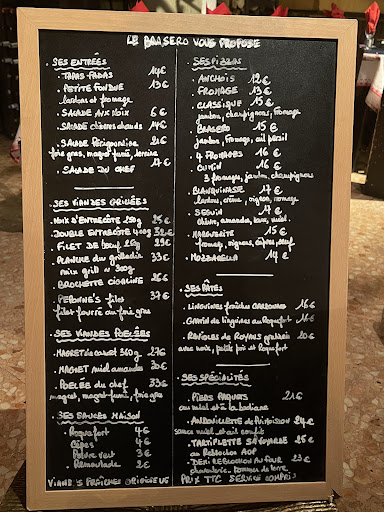 LE BRASERO VOUS PROPOSE
SES ENTRÉES
. TAPAS FADAS 14€
. PETITE FONDUE 13€
lardons et fromage
. SALADE AUX NOIX 6€
. SALADE chèvres chauds 14€
. SALADE Périgourdine 21€
foie gras, magret fumé, terrine
. SALADE DU CHEF 17€
. SES VIANDES GRILLÉES
. NOIX D'ENTRECÔTE 250g 25€
. DOUBLE ENTRECÔTE 400g 32€
. FILET DE bœuf 29€
. PLANCHE du grilladin 33€
mix grill ≈ 300g
. BROCHETTE 26€
. filet 37€
filet fourré au foie gras
. SES VIANDES POÊLÉES
. MAGRET de canard 360g 27€
. MAGRET miel amandes 30€
. POÊLÉE du chef 33€
magret, magret fumé, foie gras
. SES SAUCES MAISON
. Roquefort 4€
. Cèpes 4€
. Poivre vert 3€
. Remoulade 2€
VIANDES FRAÎCHES ORIGINE UE
SES PIZZAS
. ANCHOIS 12€
. FROMAGE 13€
. CLASSIQUE 15€
jambon, champignons, fromage
. BRASERO 15€
jambon, fromage, ail persil
. 4 FROMAGES 16€
. 16€
3 fromages, jambon, champignons
. 17€
lardons, crème, oignon, fromage
. SEGUIN 17€
chèvre, amandes, miel.
. 15€
fromage, oignons, câpres, œuf
. MOZZARELLA 14€
. SES PÂTES
. LINGUINES fraîches CARBONARA 16€
. GRATIN de linguines au Roquefort 16€
. RAVIOLES DE ROYANS gratinées 20€
avec noix, petits pois et Roquefort
. SES SPÉCIALITÉS
. PIEDS PAQUETS 21€
au miel et à la badiane
. ANDOUILLETTE de 24€
sauce miel et ail confit
. TARTIFLETTE SAVOYARDE 25€
au Reblochon AOP
. DEMI REBLOCHON AU FOUR 23€
charcuterie - pommes de terre
PRIX TTC SERVICE COMPRIS